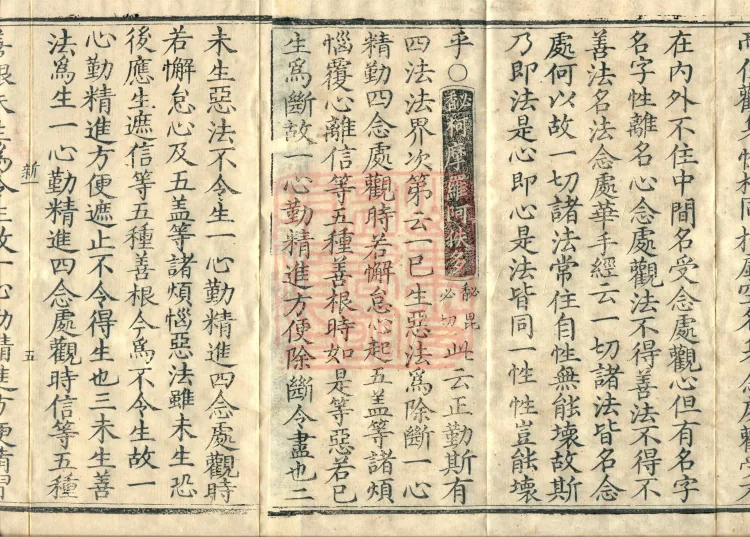 在內外不住中間名受念處觀心但有名字
名字性離名心念處觀法不得善法不得不
善法名法念處華手經云一切諸法皆名念
處何以故一切諸法常住自性無能壞故斯
乃即法是心即心是法皆同一性性豈能壞
乎○馝柯摩羅阿多馝昆必切此云正勤斯有
四法法界次第云一巳生惡法爲除斷一心
精勤四念處觀時若懈怠心起五盖等諸煩
惱覆心離信等五種善根時如是等惡若巳
生爲斷故一心勤精進方便除斷令盡也二
未生惡法不令生一心勤精進四念處觀時
若懈怠心及五盖等諸煩惱惡法雖未生恐
後應生遮信等五種善根今爲不令生故一
心勤精進方便遮止不令得生也三未生善
法爲生一心勤精進四念處觀時信等五種
新一 五